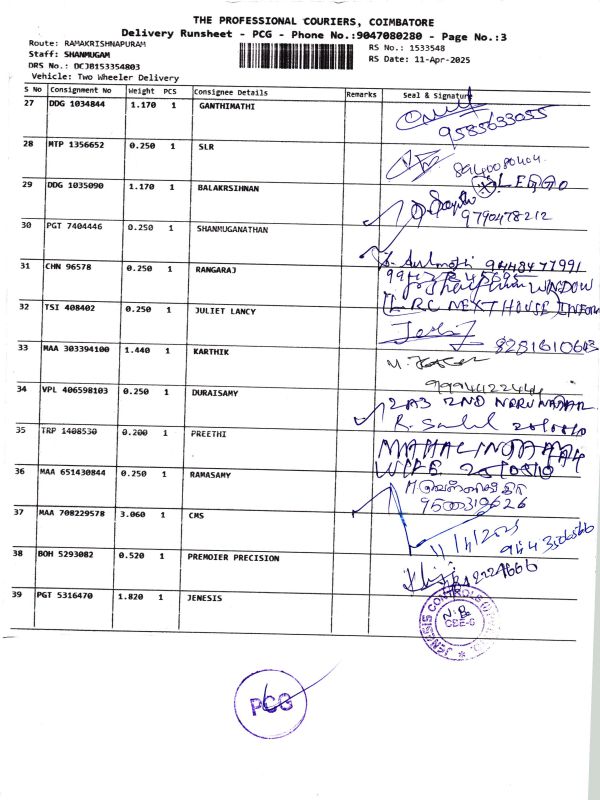 THE PROFESSIONAL COURIERS, COIMBATORE
Delivery Runsheet - PCG - Phone No.:9047080280 - Page No.:3
Route: RAMAKRISHNAPURAM
RS No.: 1533548
Staff: SHANMUGAM
RS Date: 11-Apr-2025
DRS No.: DCJB153354803
Vehicle: Two Wheeler Delivery
S No Consignment No Weight PCS Consignee Details Remarks Seal & Signature
27 DDG 1034844 1.170 1 GANTHIMATHI
9585633055
28 MTP 1356652 0.250 1 SLR
8940080404
29 DDG 1035090 1.170 1 BALAKRSIHNAN
9790478212
30 PGT 7404446 0.250 1 SHANMUGANATHAN
31 CHN 96578 0.250 1 RANGARAJ
WINDOW
32 TSI 408402 0.250 1 JULIET LANCY
NEXT HOUSE
33 MAA 303394100 1.440 1 KARTHIK
34 VPL 406598103 0.250 1 DURAISAMY
2ND
35 TRP 1408530 0.200 1 PREETHI
36 MAA 651430844 0.250 1 RAMASAMY
WIFE
37 MAA 708229578 3.060 1 CMS
11/4/2025
38 BOH 5293082 0.520 1 PREMOIER PRECISION
39 PGT 5316470 1.820 1 JENESIS
CBE-6
PCG